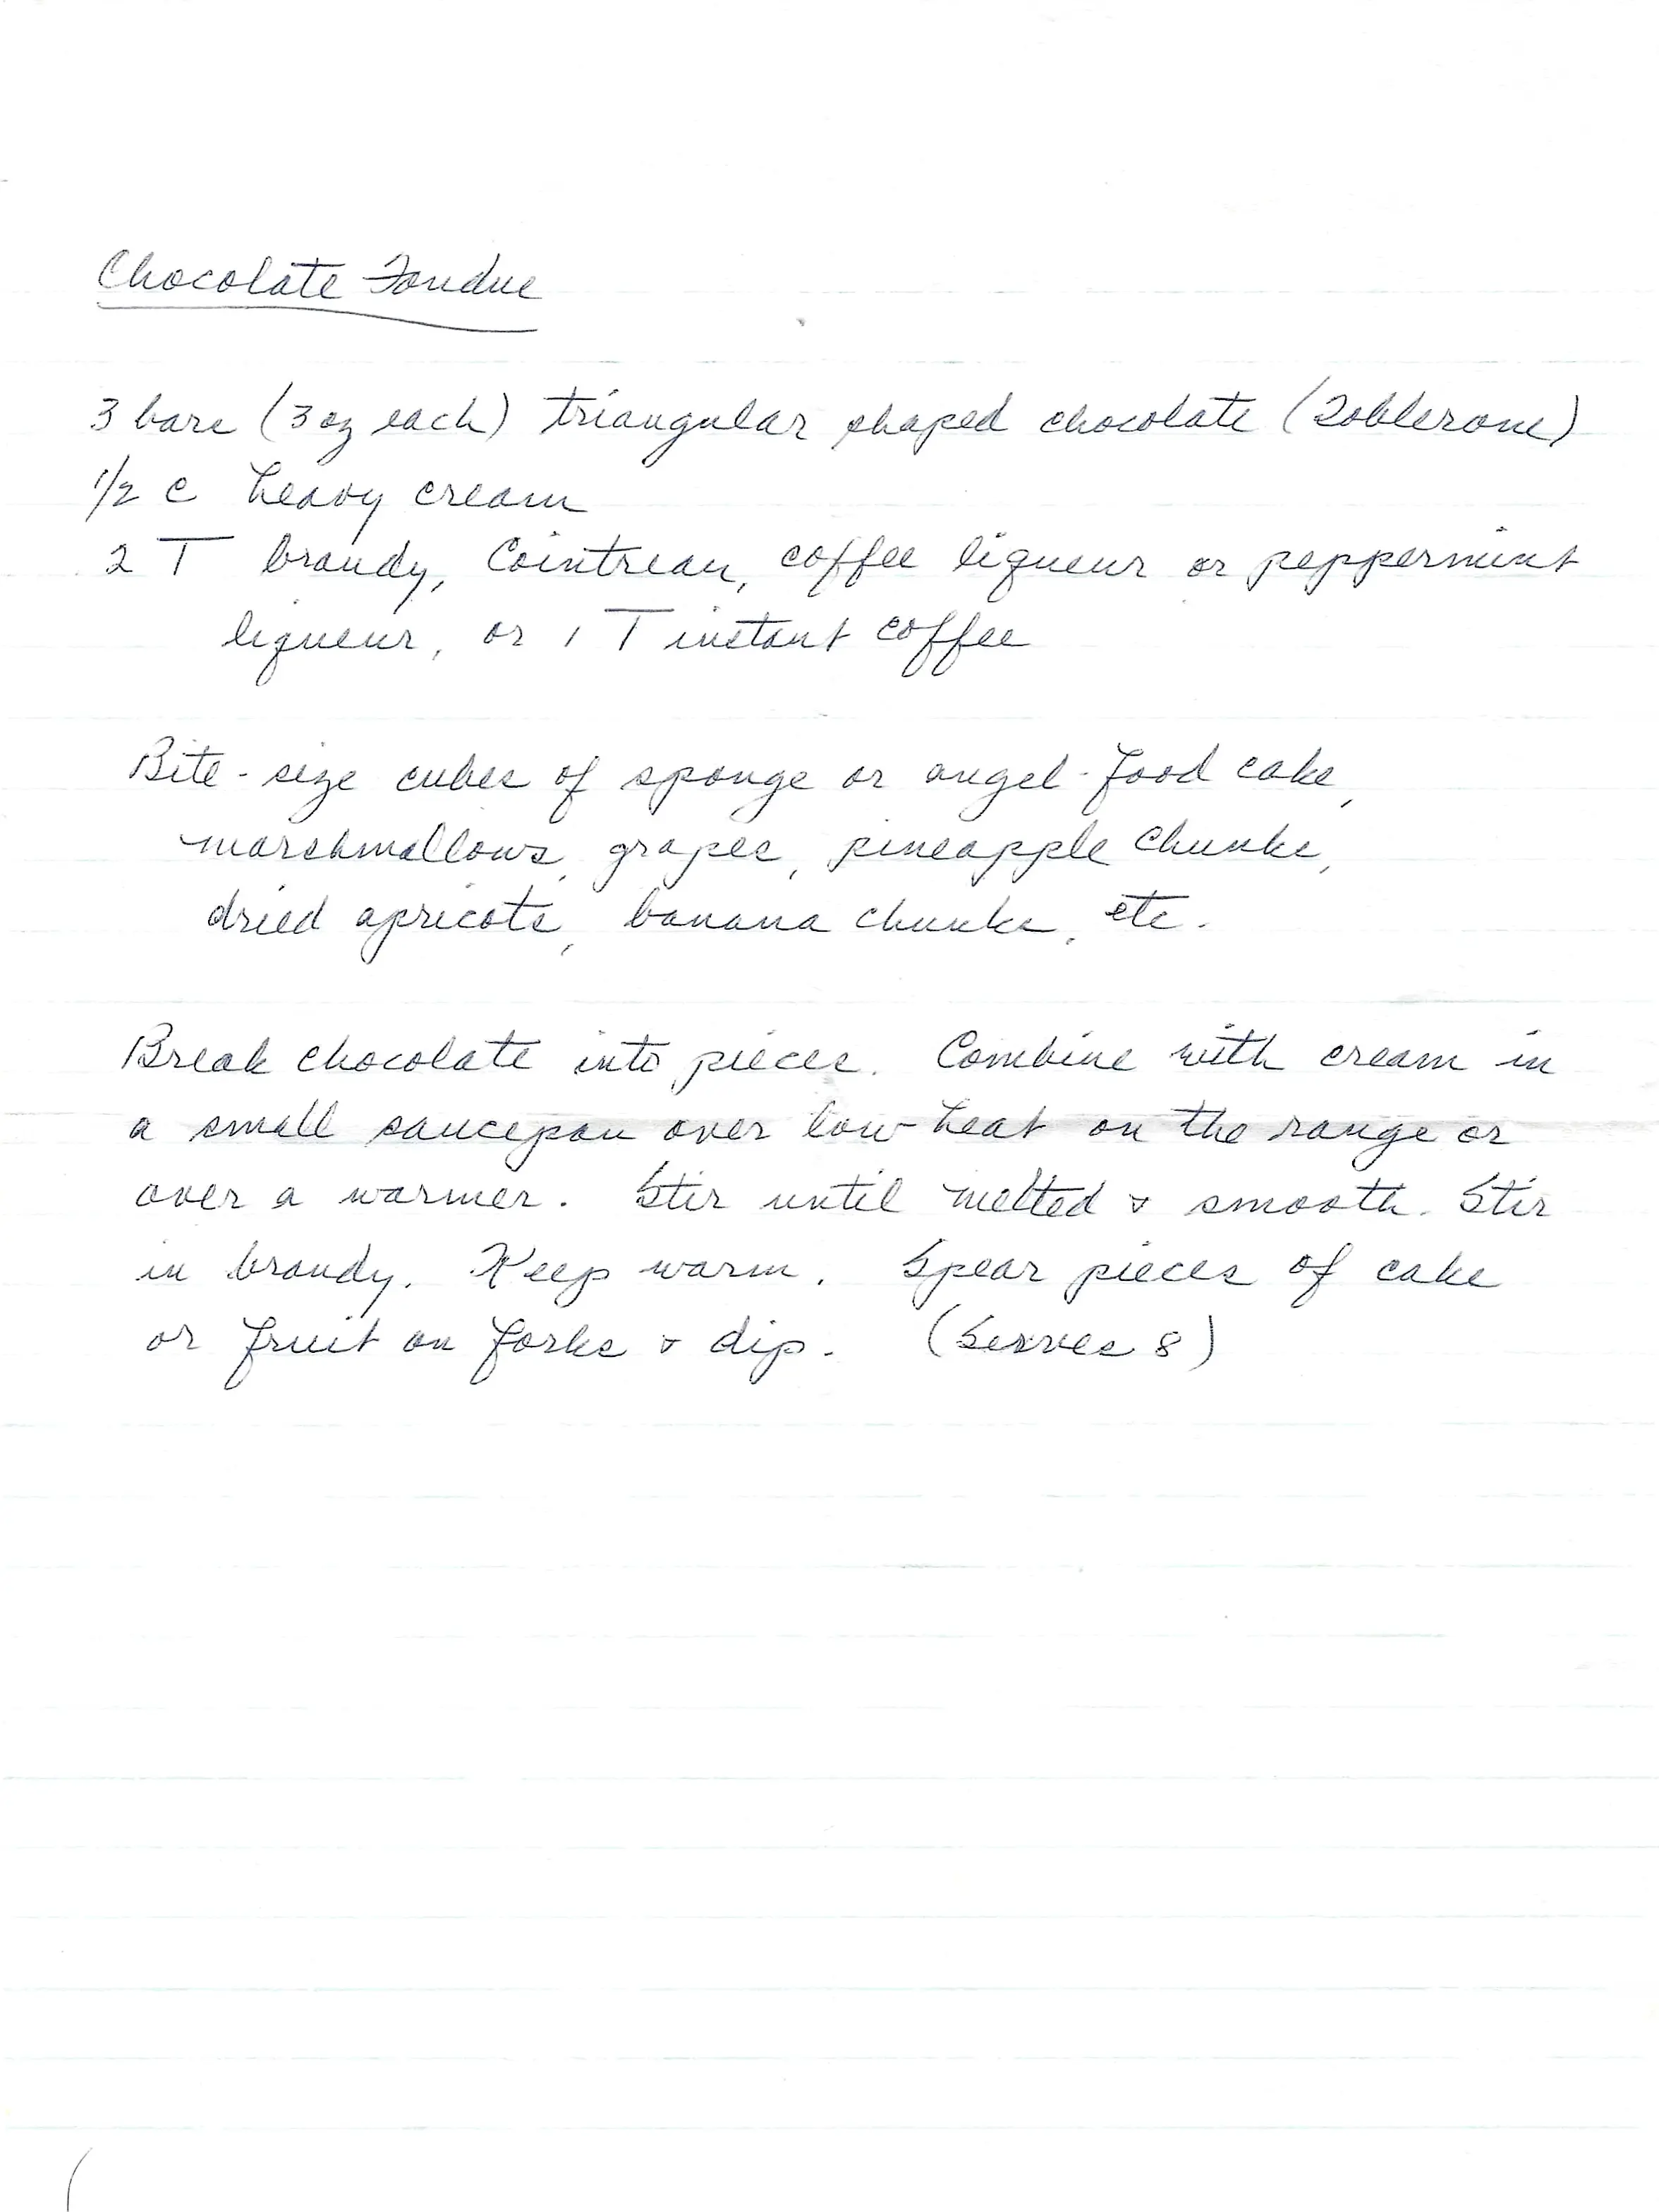 Chocolate Fondue
3 bars (3 oz each) triangular shaped chocolate (Toblerone)
1/2 c heavy cream
2 T brandy, Cointreau, coffee liqueur or peppermint
liqueur, or 1 T instant coffee
Bite-size cubes of sponge or angel-food cake,
marshmallows, grapes, pineapple chunks,
dried apricots, banana chunks, etc.
Break chocolate into pieces. Combine with cream in
a small saucepan over low heat on the range or
over a warmer. Stir until melted & smooth. Stir
in brandy. Keep warm. Spear pieces of cake
or fruit on forks & dip. (Serves 8)